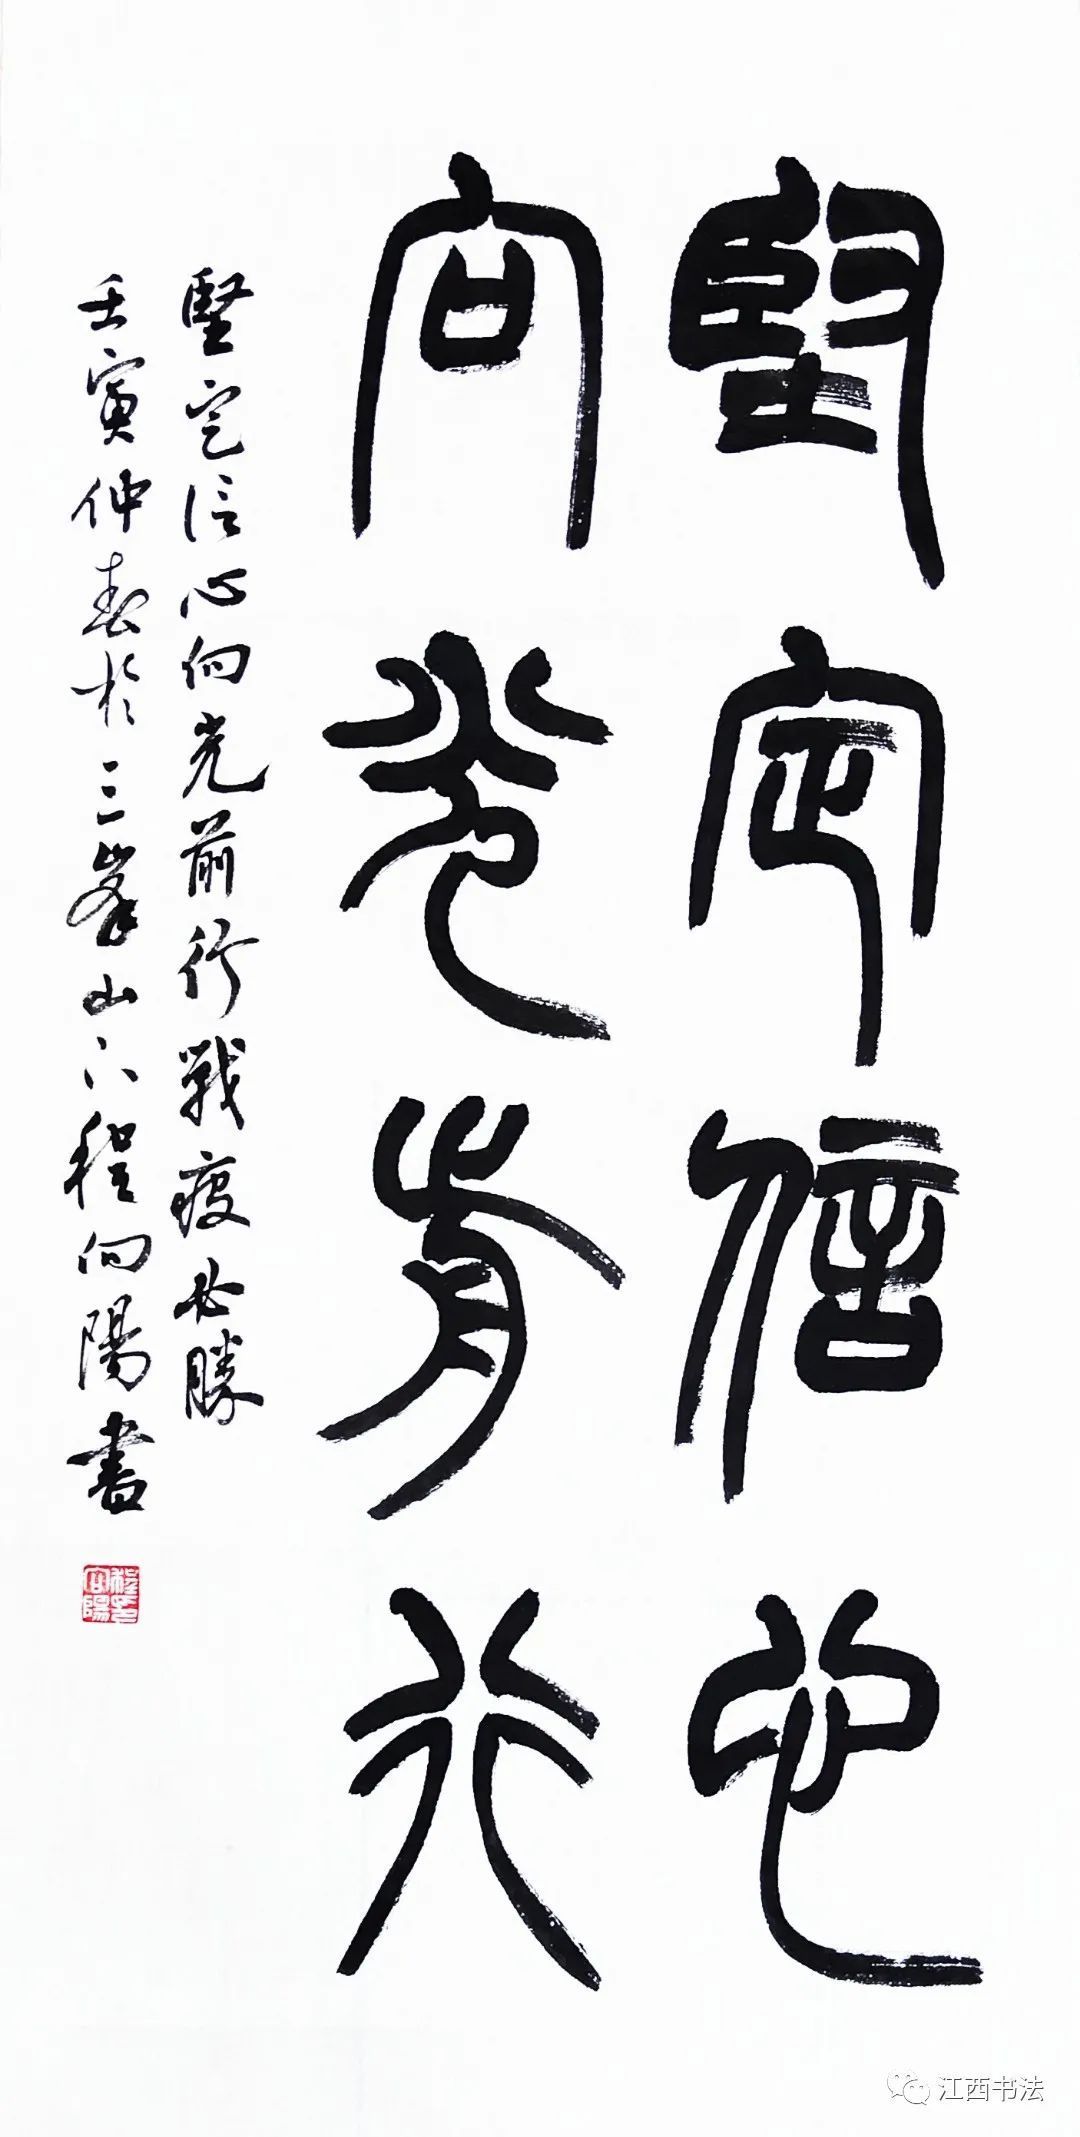 堅定信心
向光前行
堅定信心向光前行戰疫必勝
壬寅仲春於三峯山下程向陽書
江西书法